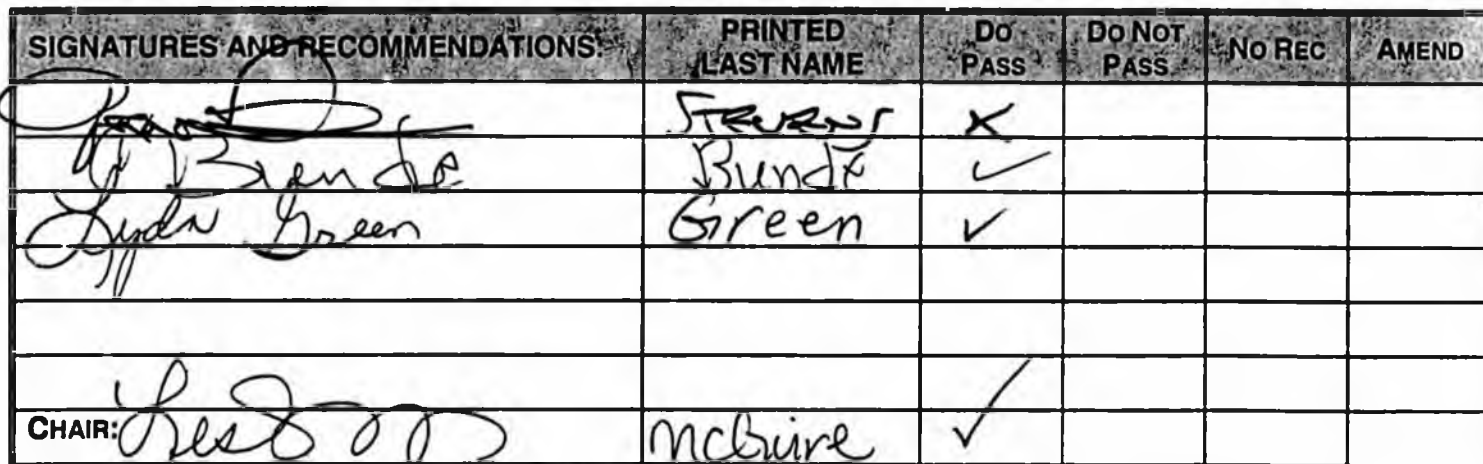 SIGNATURES AND RECOMMENDATIONS: PRINTED LAST NAME DO PASS DO NOT PASS NO REC AMEND
Stevens X
Bunde Bunde ✓
Lyda Green Green ✓
CHAIR: McGuire ✓